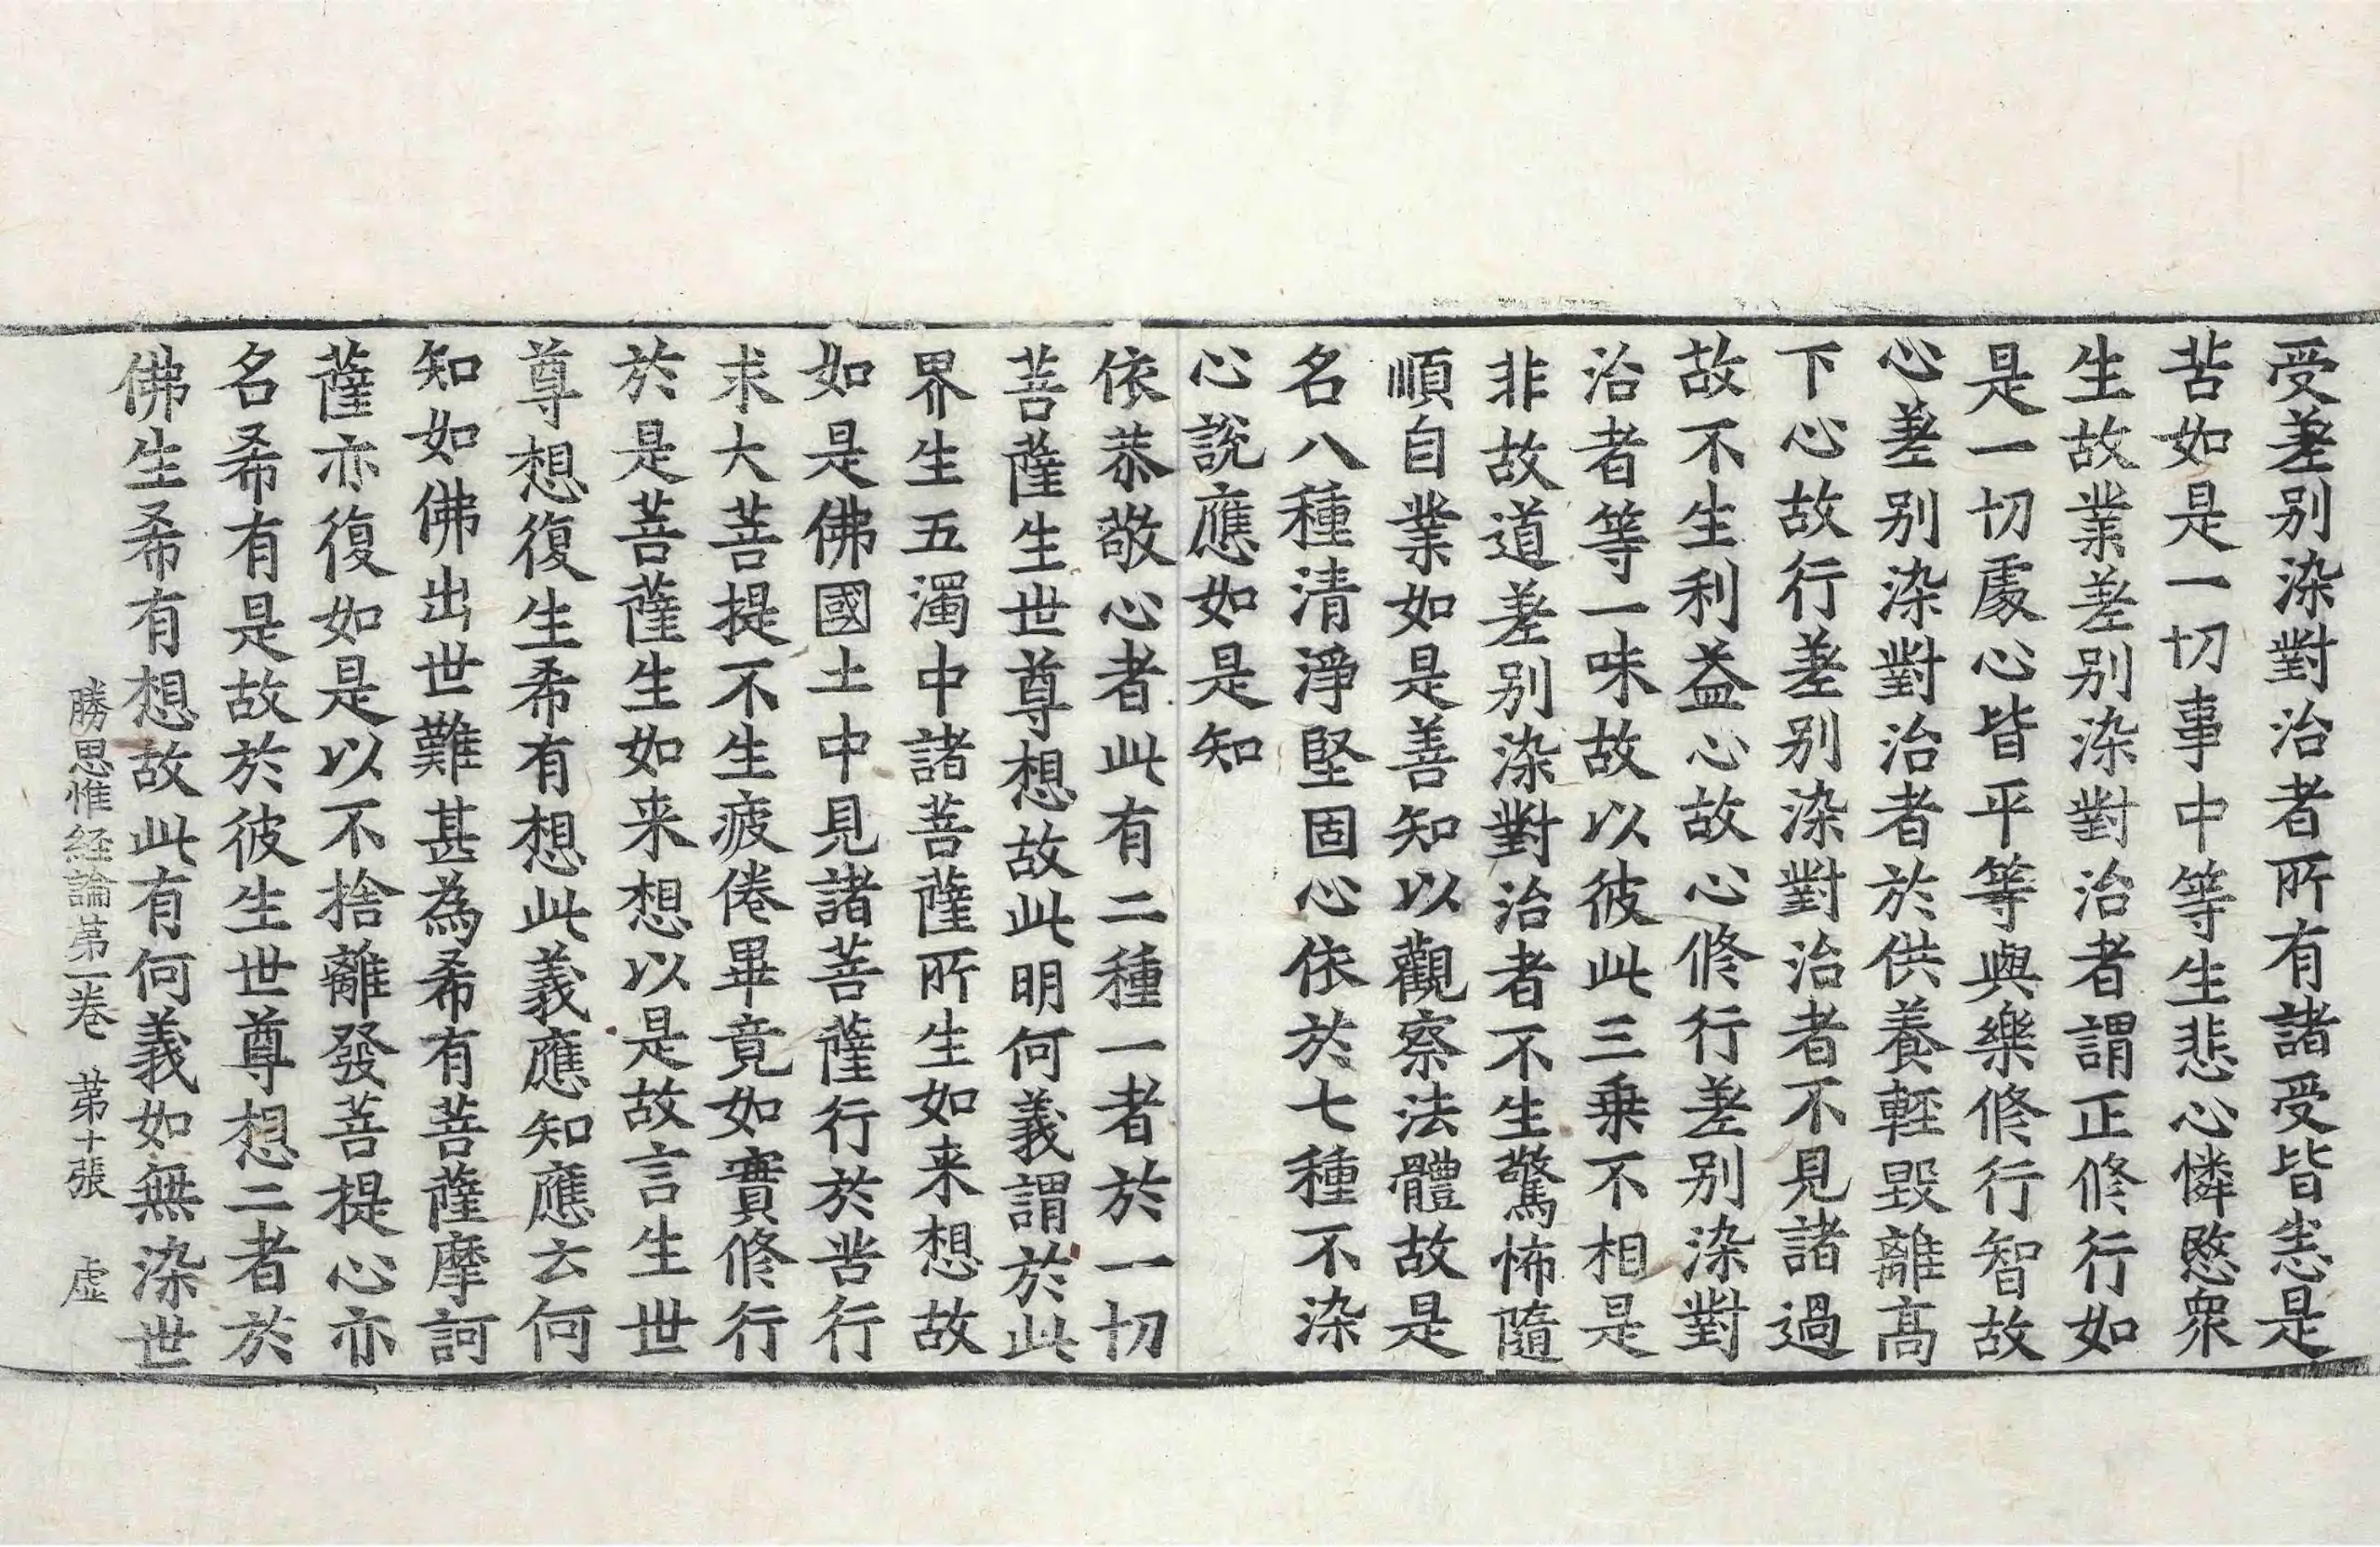 受差別染對治者所有諸受皆恙是
苦如是一切事中等生悲心憐愍衆
生故業差別染對治者謂正修行如
是一切處心皆平等與樂修行智故
心差別染對治者於供養輕毀離高
下心故行差別染對治者不見諸過
故不生利益心故心修行差別染對
治者等一味故以彼此三乗不相是
非故道差別染對治者不生驚怖隨
順自業如是善知以觀察法體故是
名八種清淨堅固心依於七種不染
心說應如是知
依恭敬心者此有二種一者於一切
菩薩生世尊想故此明何義謂於此
界生五濁中諸菩薩所生如来想故
如是佛國土中見諸菩薩行於苦行
求大菩提不生疲倦畢竟如實修行
於是菩薩生如来想以是故言生世
尊想復生希有想此義應知應云何
知如佛出世難甚為希有菩薩摩訶
薩亦復如是以不捨離發菩提心亦
名希有是故於彼生世尊想二者於
佛生希有想故此有何義如無染世
勝思惟経論苐一卷 苐十張 虛